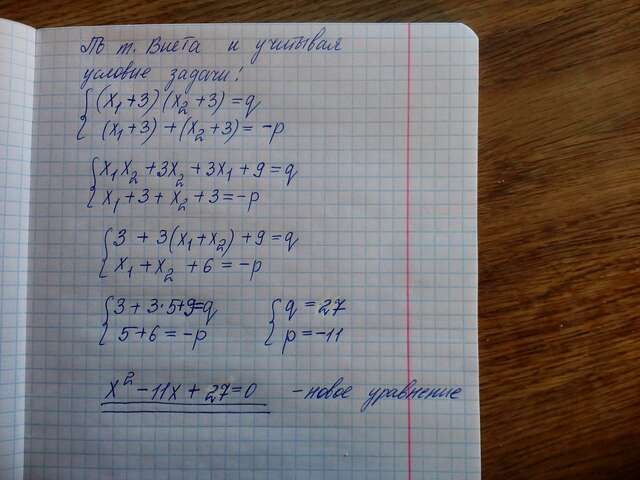 По т. Виета и учитывая
условие задачи:
(x₁+3)(x₂+3)=q
(x₁+3)+(x₂+3)=-p
x₁x₂+3x₂+3x₁+9=q
x₁+3+x₂+3=-p
3+3(x₁+x₂)+9=q
x₁+x₂+6=-p
3+3·5+9=q q=27
5+6=-p p=-11
x²-11x+27=0 -новое уравнение